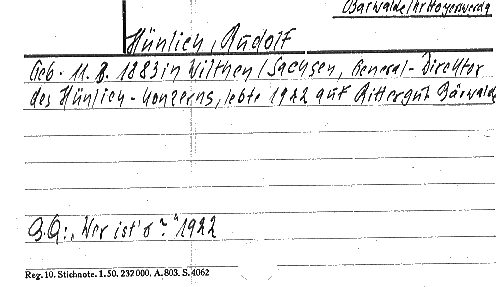 Bärwalde/Kr Hoyerswerda
Hünlich, Rudolf
Geb. 11. 8. 1883 in Wilthen/Sachsen, General-Direktor
des Hünlich-Konzerns, lebte 1922 auf Rittergut Bärwalde
B.Q: „Wer ist's?" 1922
Reg. 10. Stichnote. 1. 50. 232000. A. 803. S. 4062